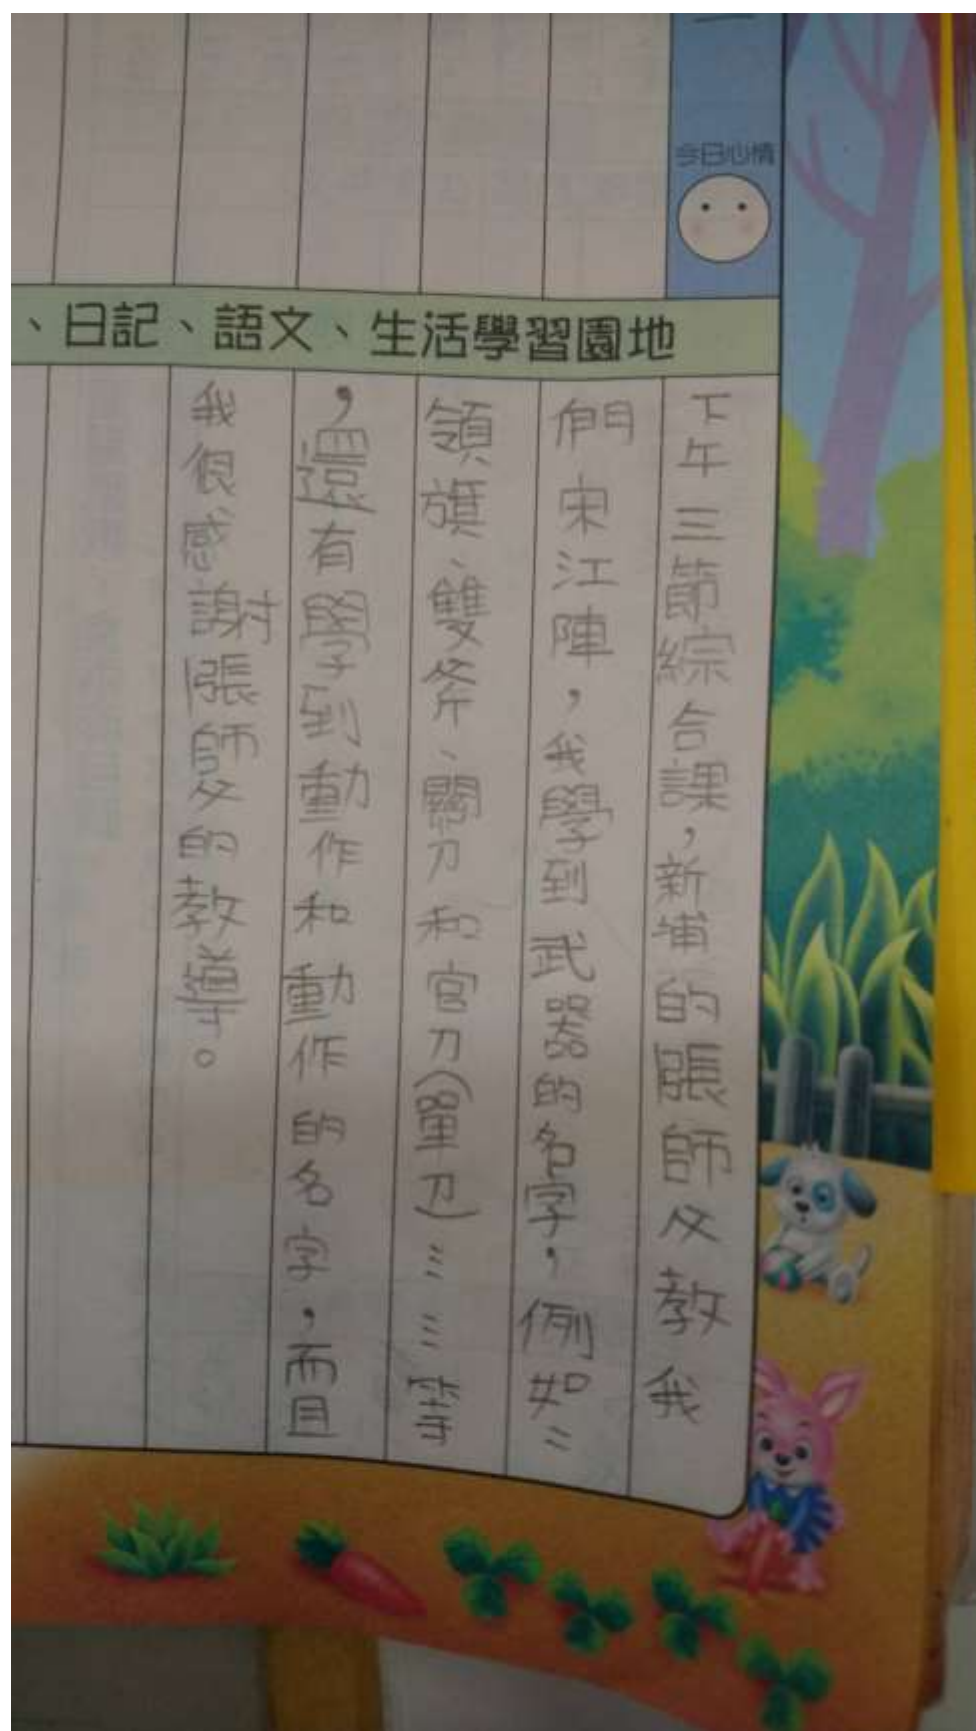 今日心情
、日記、語文、生活學習園地
下午三節綜合課，新埔的張師父教我
們宋江陣，我學到武器的名字，例如：
領旗、雙斧、關刀和官刀(單刀)……等
，還有學到動作和動作的名字，而且
我很感謝張師父的教導。